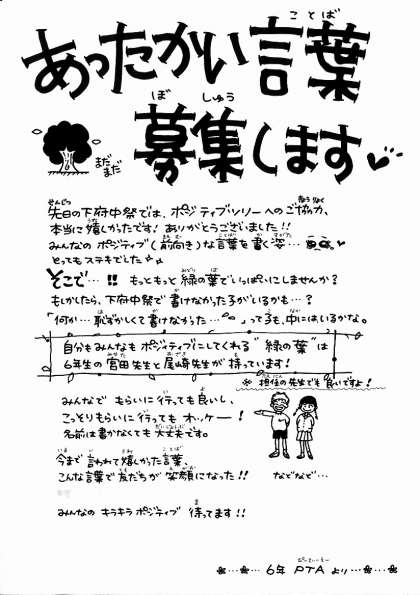 あったかい言葉
募集します
まだまだ
先日の下府中祭では、ポジティブツリーへのご協力、
本当に嬉しかったです! ありがとうございました!!
みんなの ポジティブ(前向き)な言葉を書く姿…
とってもステキでした
そこで…!! もっともっと緑の葉でいっぱいにしませんか?
もしかしたら、下府中祭で書けなかった子がいるかも…?
「何か…恥ずかしくて書けなかった…」って子も、中にはいるかな。
自分もみんなもポジティブにしてくれる"緑の葉"は
6年生の宮田先生と尾崎先生が持っています!
※ 担任の先生でも良いですよ!
みんなで もらいに行っても良いし、
こっそりもらいに行っても オッケー!
名前は書かなくても大丈夫です。
今まで言われて嬉しかった言葉、
こんな言葉で友だちが笑顔になった!! などなど…
みんなの キラキラポジティブ 待ってます!!
…6年 PTAより…